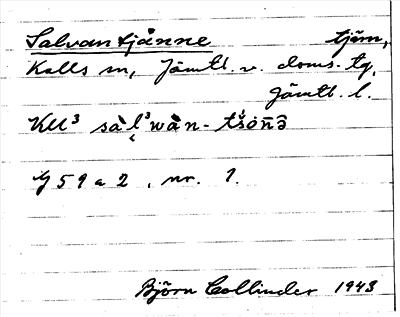 Salvantjänne tjärn,
Kalls sn, Jämtl. v. doms. tg,
Jämtl. l.
KU³ sàl³wàn-
G 59 a 2, nr. 1.
Björn Collinder 1943